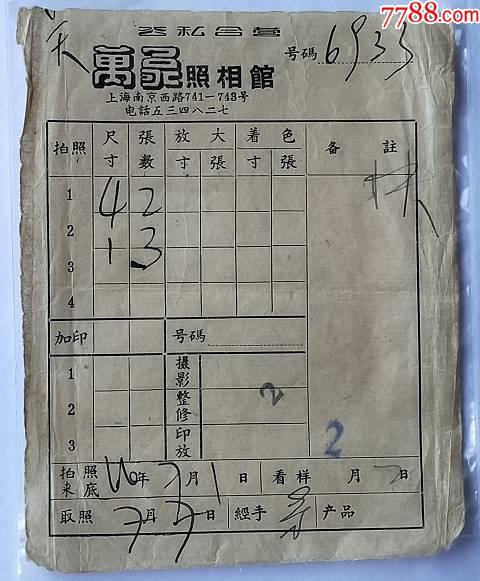 7788.com
公私合营
禾
萬象照相館
号碼 6933
上海南京西路741—743号
电話五三四八二七
拍照 尺寸 張数 放大 寸 張 着色 寸 張 备註
1 4 2
2 1 3
3
4
加印 号碼
1 摄影
2 整修 2
3 印放 2
拍照 来底 60年7月1日 看样 月 日
取照 7月7日 經手 产品